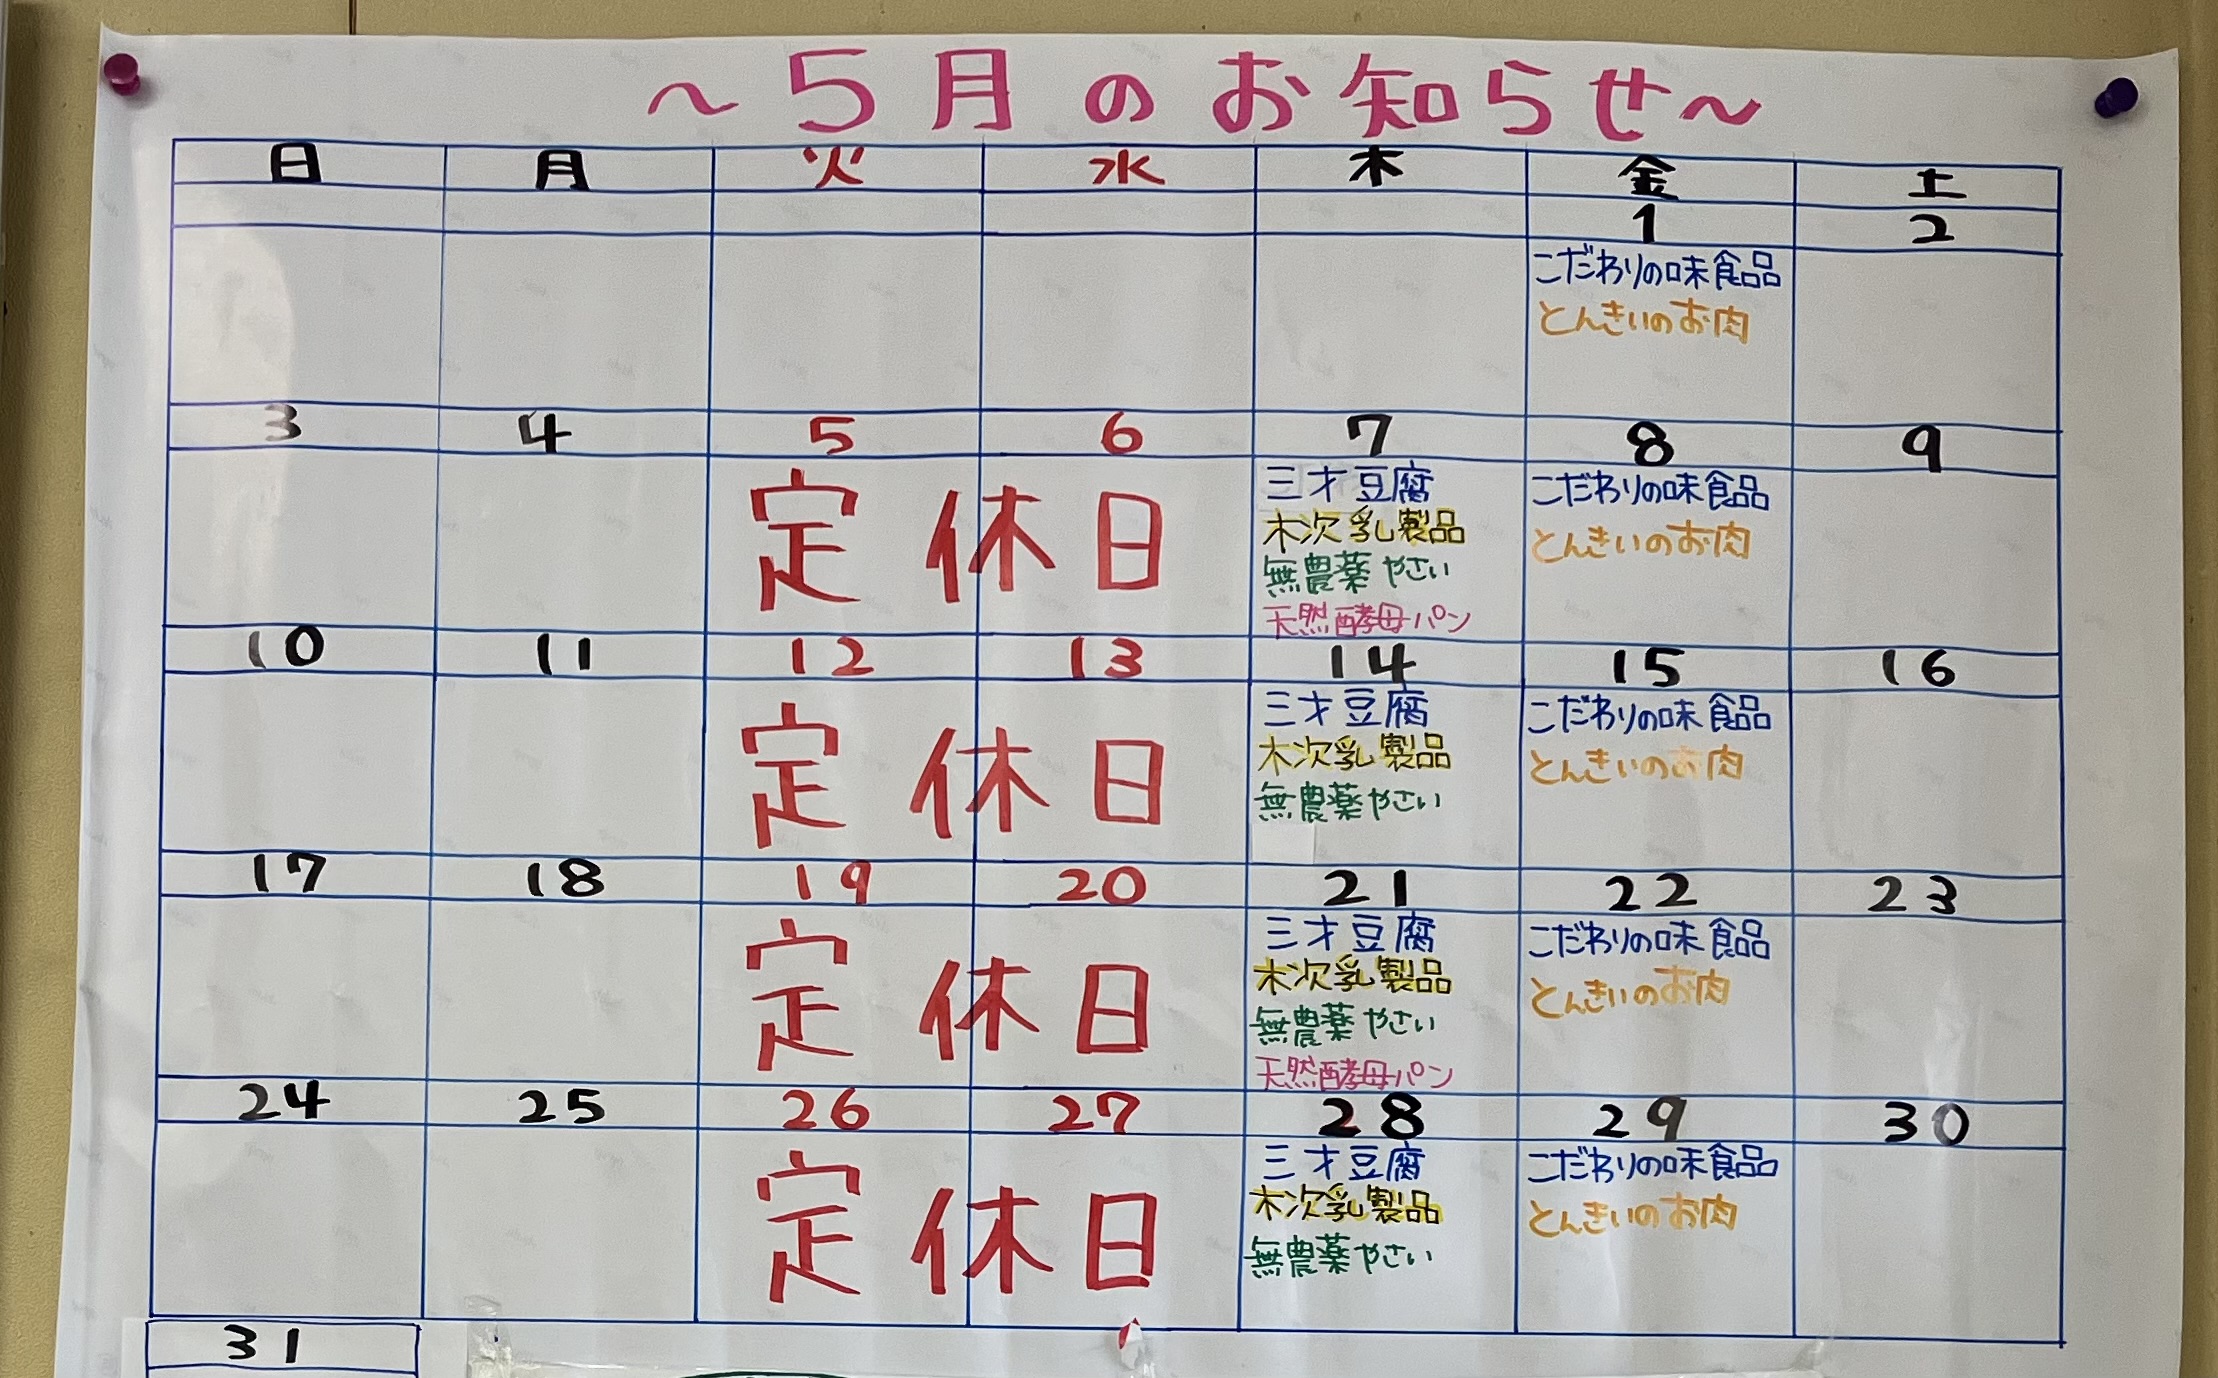 ～5月のお知らせ～
日 月 火 水 木 金 土
1 2
こだわりの味食品
とんきいのお肉
3 4 5 6 7 8 9
定休日
三才豆腐
木次乳製品
無農薬やさい
天然酵母パン
こだわりの味食品
とんきいのお肉
10 11 12 13 14 15 16
定休日
三才豆腐
木次乳製品
無農薬やさい
こだわりの味食品
とんきいのお肉
17 18 19 20 21 22 23
定休日
三才豆腐
木次乳製品
無農薬やさい
天然酵母パン
こだわりの味食品
とんきいのお肉
24 25 26 27 28 29 30
定休日
三才豆腐
木次乳製品
無農薬やさい
こだわりの味食品
とんきいのお肉
31